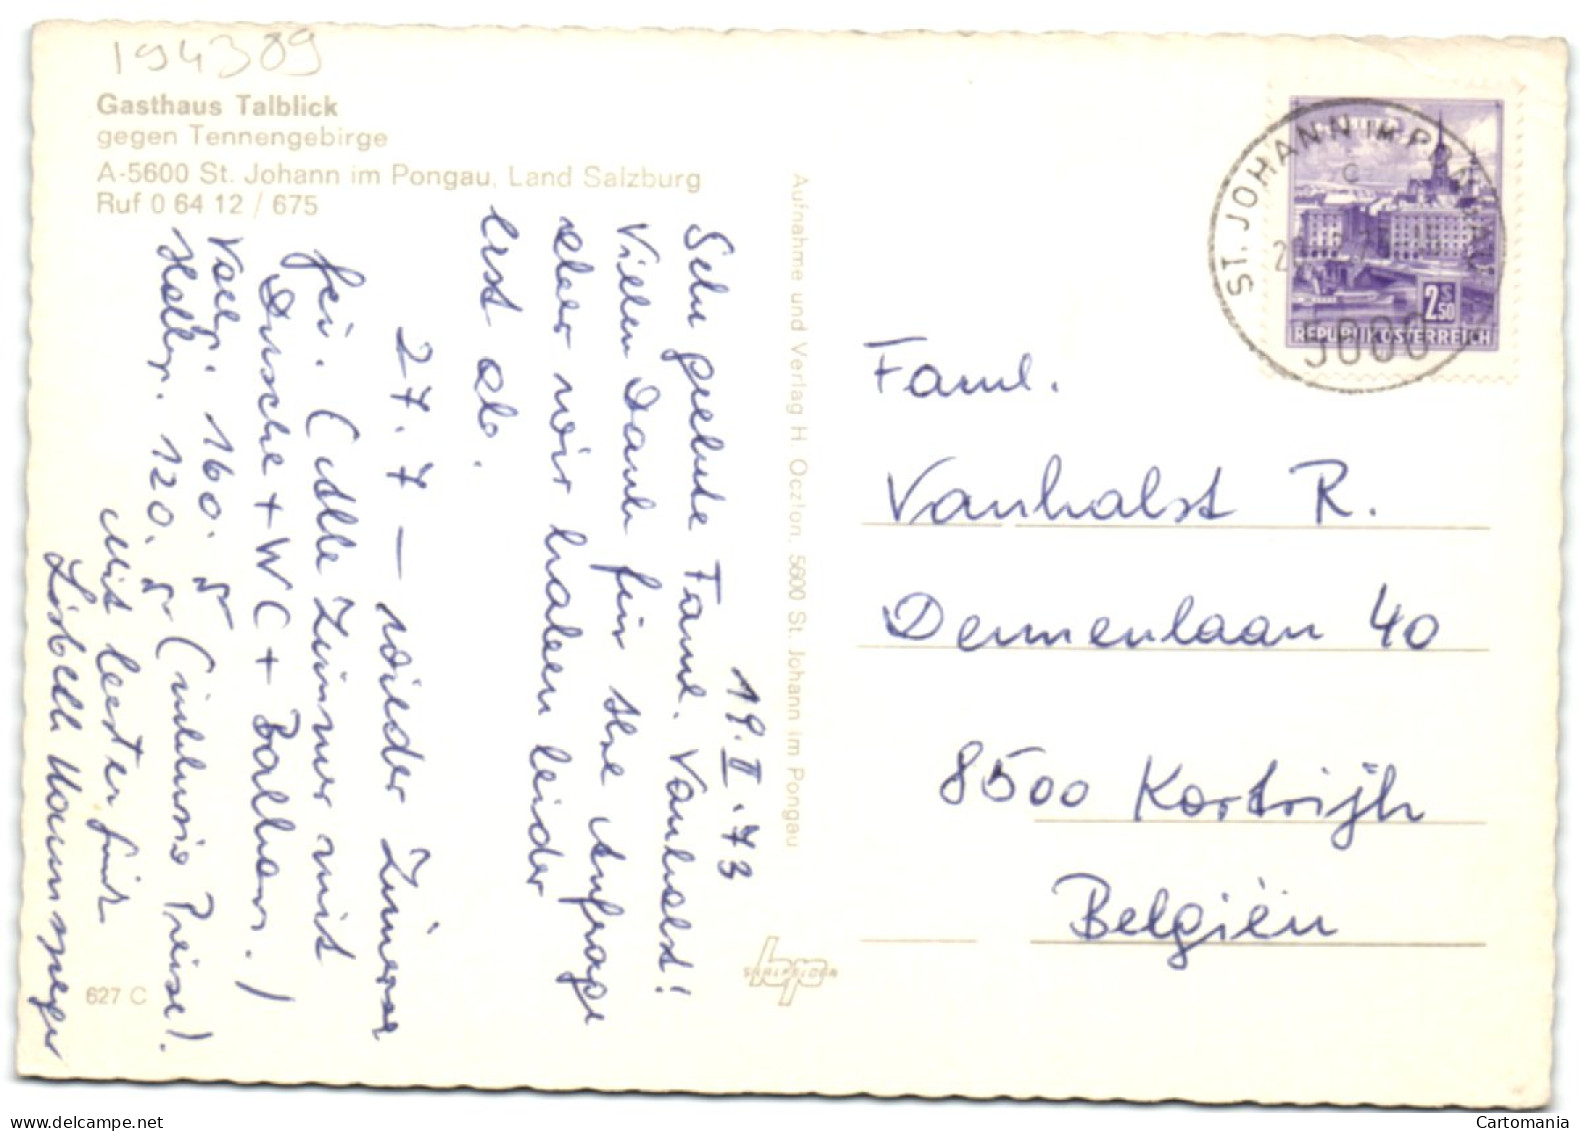 194389
Gasthaus Talblick
gegen Tennengebirge
A-5600 St. Johann im Pongau, Land Salzburg
Ruf 0 64 12 / 675
19.II.73
Sehr geehrte Faml. Vanhalst!
Vielen Dank für Ihre Anfrage
aber wir haben leider
erst ab.
27.7 — wieder Zimmer
frei. (Alle Zimmer mit
Dusche + WC + Balkon.)
Vollp. 160.- S
Halbp. 120.- S (inklusive Preise).
Mit besten
627 C
Aufnahme und Verlag H. Oczlon, 5600 St. Johann im Pongau
hp
ST. JOHANN IM PONGAU
c
5600
2S50
REPUBLIK ÖSTERREICH
Faml.
Vanhalst R.
Dennenlaan 40
8500 Kortrijk
Belgiën
Cartomania